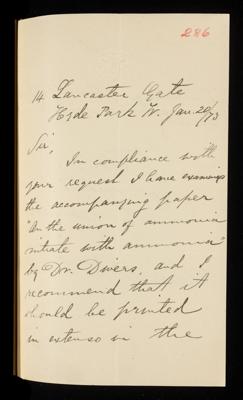 286
14 Lancaster Gate
Hyde Park W. Jan. 20/73
Sir,
In compliance with
your request I have examined
the accompanying paper
"On the union of ammonia
nitrate with ammonia"
by Dr. Divers, and I
recommend that it
should be printed
in extenso in the